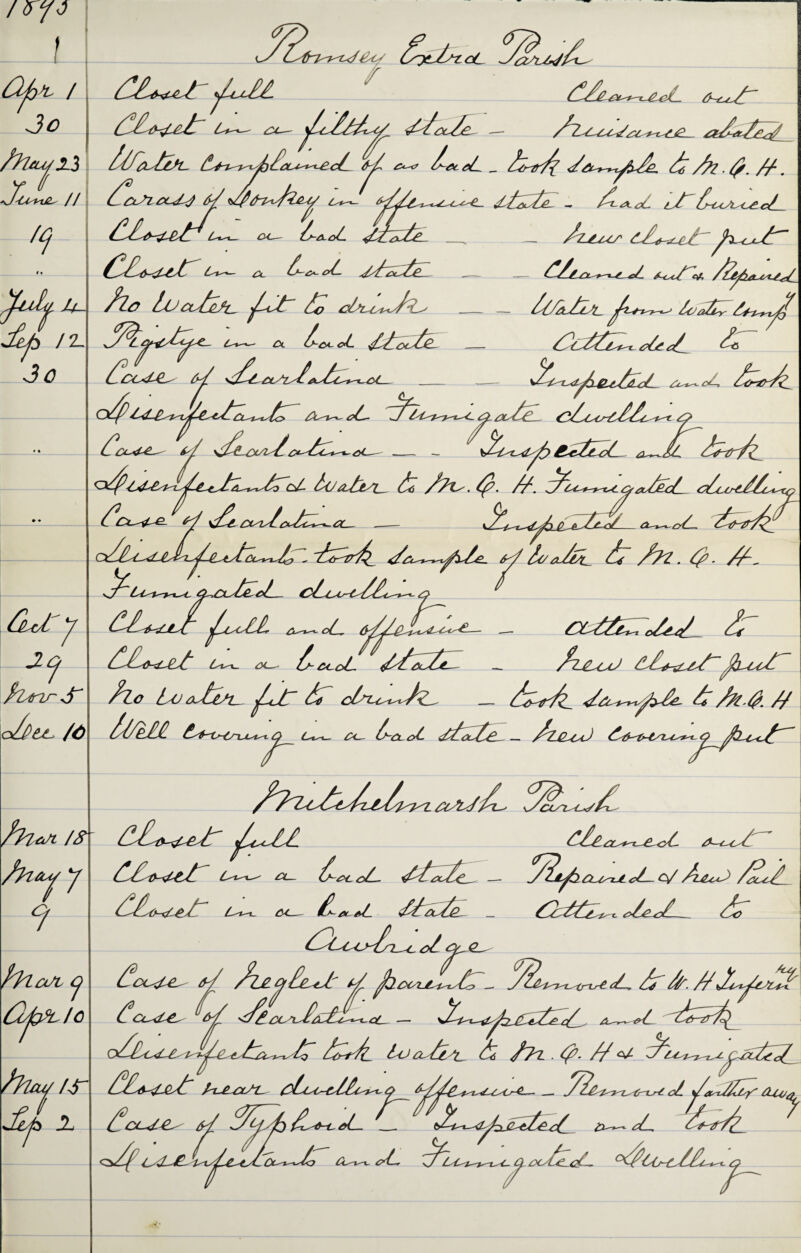 1893
1 Romsey Extra Parish
Apr 1 Closet full Cleaned out
30 Closet in a filthy state - Nuisance abated
May 23 Water Complained of as bad - took sample to M.O.H.
June 11 Carass of Donkey in offensive state - had it buried
19 Closet in a bad state - - New closet put
" Closet in a bad state - - Cleaned out & Repaired
July 4 No Water fit to drink - - Water from Water Compy
Sep 12 Pigstye in a bad state - Attended to
30 Case of Scarlatina - - Inspected and took
Disenfectants and Fumigate dwelling
" Case of Scarlatina - - Inspected and took
Disenfectants & Water to M.O.H. Fumigated dwelling
" Case of Scarlatina - Inspected and took
Disenfectants - took sample of Water to M.O.H.
Fumigated dwelling
Oct 7 Closet full and offensive - Attended to
29 Closet in a bad state - New Closet put
Nov 5 No Water fit to drink - took sample to M.O.H
Dec 10 Well Covering in a bad state - New Covering put
Mitchelmarsh Parish
Mar 18 Closet full Cleaned out
May 7 Closet in a bad state - Repaired & New Pail
9 Closet in a bad state - Attended to
Awbridge
Mar 9 Case of Neglect of parents - Removed to W.H Infernry
Apr 10 Case of Scarlatina - Inspected and took
Disenfectants took Water to M.O.H & Fumigated
May 15 Closet near dwelling offensive - Removed farther away
Sep 2 Case of Typhoid - Inspected and took
Disenfectants and Fumigated Dwelling